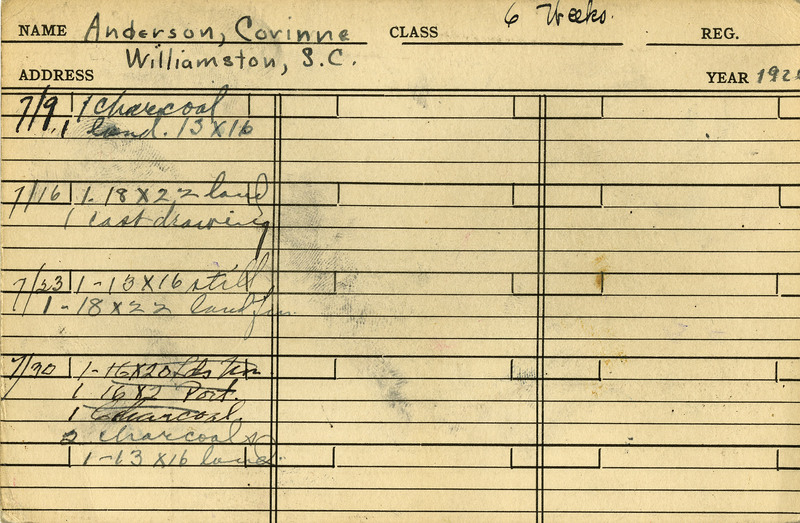 6 Weeks.
NAME Anderson, Corinne CLASS REG.
Williamston, S.C.
ADDRESS YEAR 192
7/9 1 Charcoal
1 land. 13 X 16
7/16 1 - 18 X 22 land
1 cast drawing
7/23 1 - 13 X 16 still
1 - 18 X 22 land
7/30 1 - 16 X 20
1 16 X 2 Port.
1 Charcoal
2 charcoals
1 - 13 X 16 land.